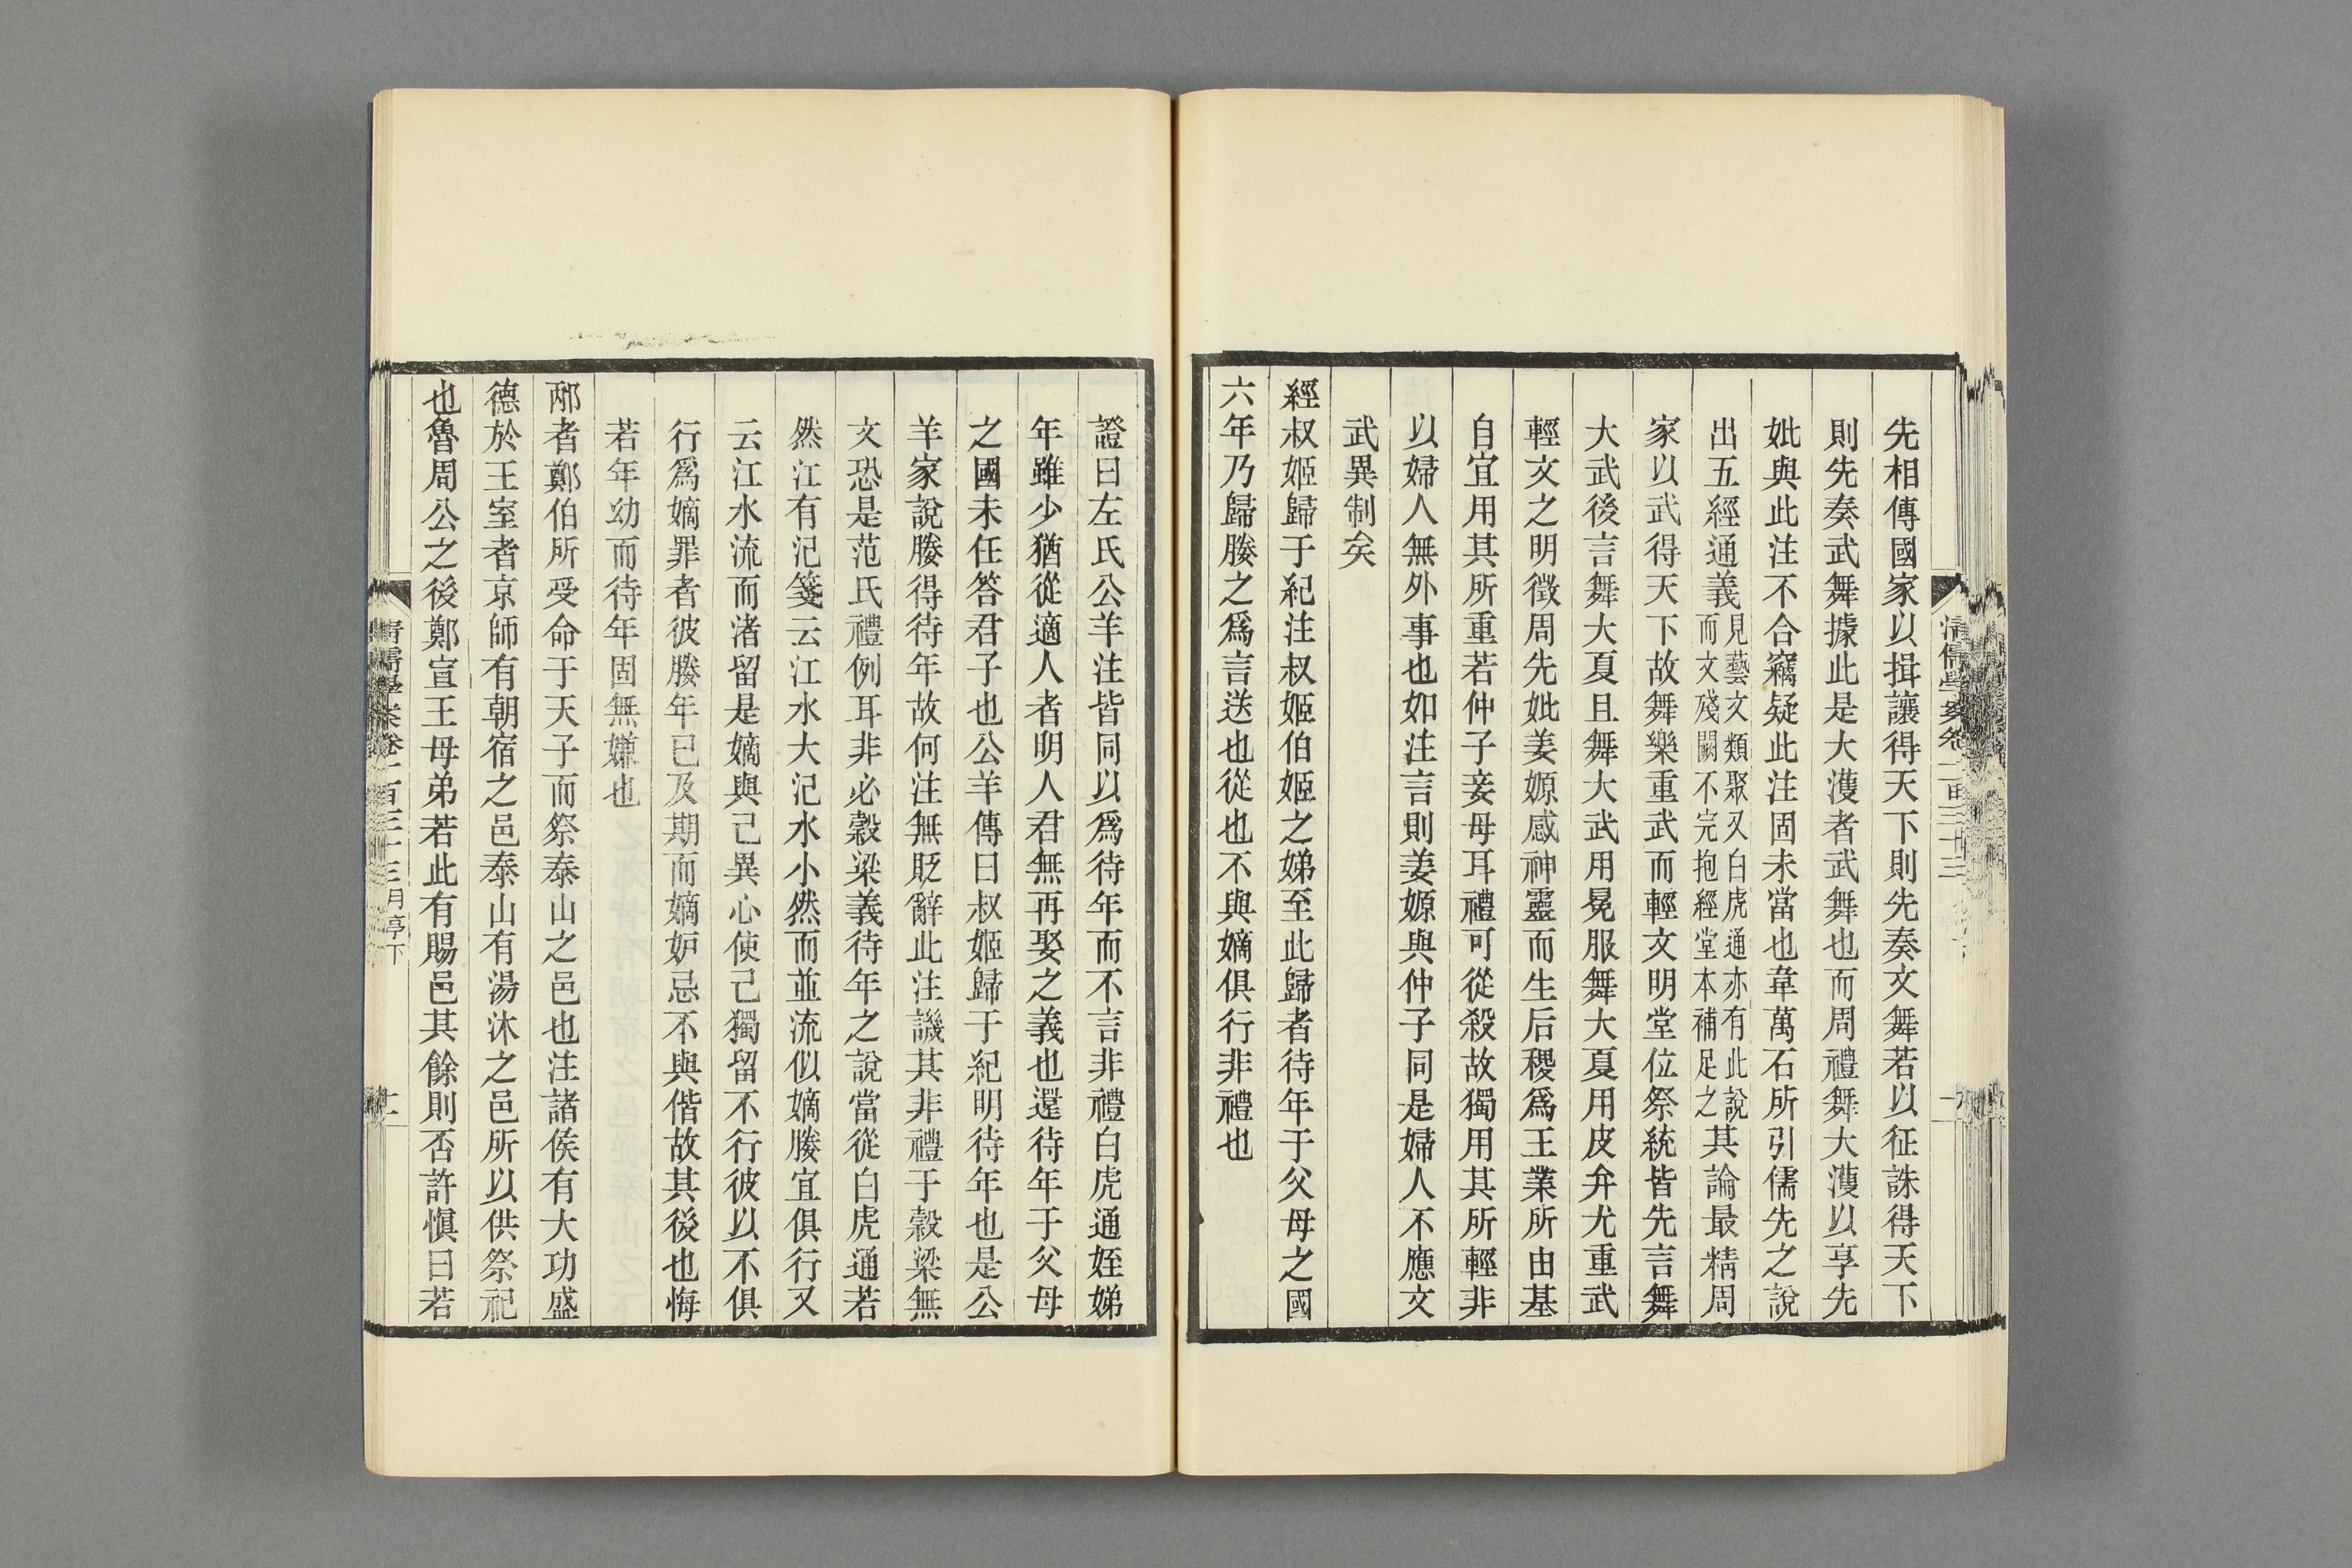 先相傳國家以揖讓得天下則先奏文舞若以征誅得天下
則先奏武舞據此是大濩者武舞也而周禮舞大濩以享先
妣與此注不合竊疑此注固未當也韋萬石所引儒先之說
出五經通義見藝文類聚又白虎通亦有此說而文殘闕不完抱經堂本補足之其論最精周
家以武得天下故舞樂重武而輕文明堂位祭統皆先言舞
大武後言舞大夏且舞大武用冕服舞大夏用皮弁尤重武
輕文之明徵周先妣姜嫄感神靈而生后稷爲王業所由基
自宜用其所重若仲子妾母耳禮可從殺故獨用其所輕非
以婦人無外事也如注言則姜嫄與仲子同是婦人不應文
武異制矣
經叔姬歸于紀注叔姬伯姬之娣至此歸者待年于父母之國
六年乃歸媵之爲言送也從也不與嫡俱行非禮也
證曰左氏公羊注皆同以爲待年而不言非禮白虎通姪娣
年雖少猶從適人者明人君無再娶之義也還待年于父母
之國未任答君子也公羊傳曰叔姬歸于紀明待年也是公
羊家說媵得待年故何注無貶辭此注譏其非禮于穀梁無
文恐是范氏禮例耳非必穀梁義待年之說當從白虎通若
然江有汜箋云江水大汜水小然而並流似嫡媵宜俱行又
云江水流而渚留是嫡與己異心使己獨留不行彼以不俱
行爲嫡罪者彼媵年已及期而嫡妒忌不與偕故其後也悔
若年幼而待年固無嫌也
邴者鄭伯所受命于天子而祭泰山之邑也注諸侯有大功盛
德於王室者京師有朝宿之邑泰山有湯沐之邑所以供祭祀
也魯周公之後鄭宣王母弟若此有賜邑其餘則否許愼曰若